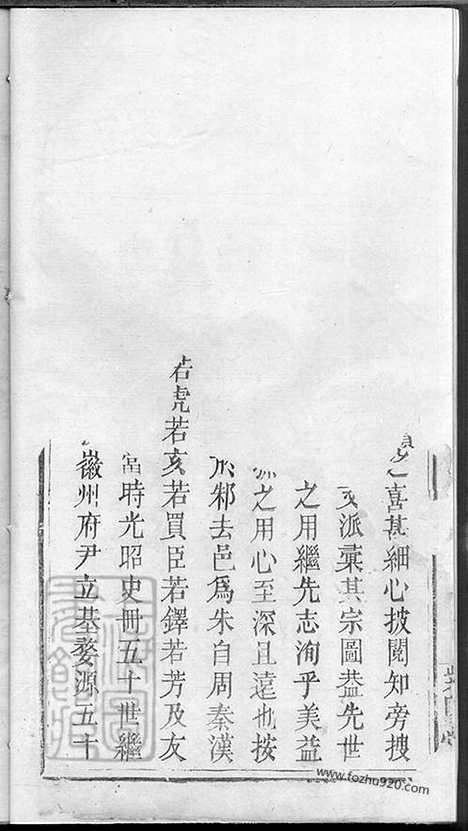 之喜甚細心披閱知旁搜
派彙其宗圖益先世
之用繼先志洵乎美益
之用心至深且遠也按
邾去邑爲朱自周秦漢
若虎若亥若買臣若鐸若芳及友
當時光昭史冊五十世繼
徽州府尹立基婺源五十
www.fozhu920.com